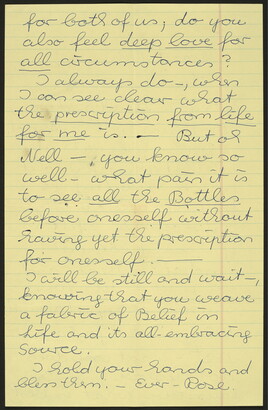 for both of us; do you
also feel deep love for
all circumstances?
I always do -, when
I can see clear what
the prescription from life
for me is. — But oh
Nell -, you know so
well - what pain it is
to see all the Bottles
before onesself without
having yet the prescription
for onesself. —
I will be still and wait -,
knowing that you weave
a fabric of Belief in
Life and its all-embracing
Source.
I hold your hands and
bless them. - Ever - Rose.